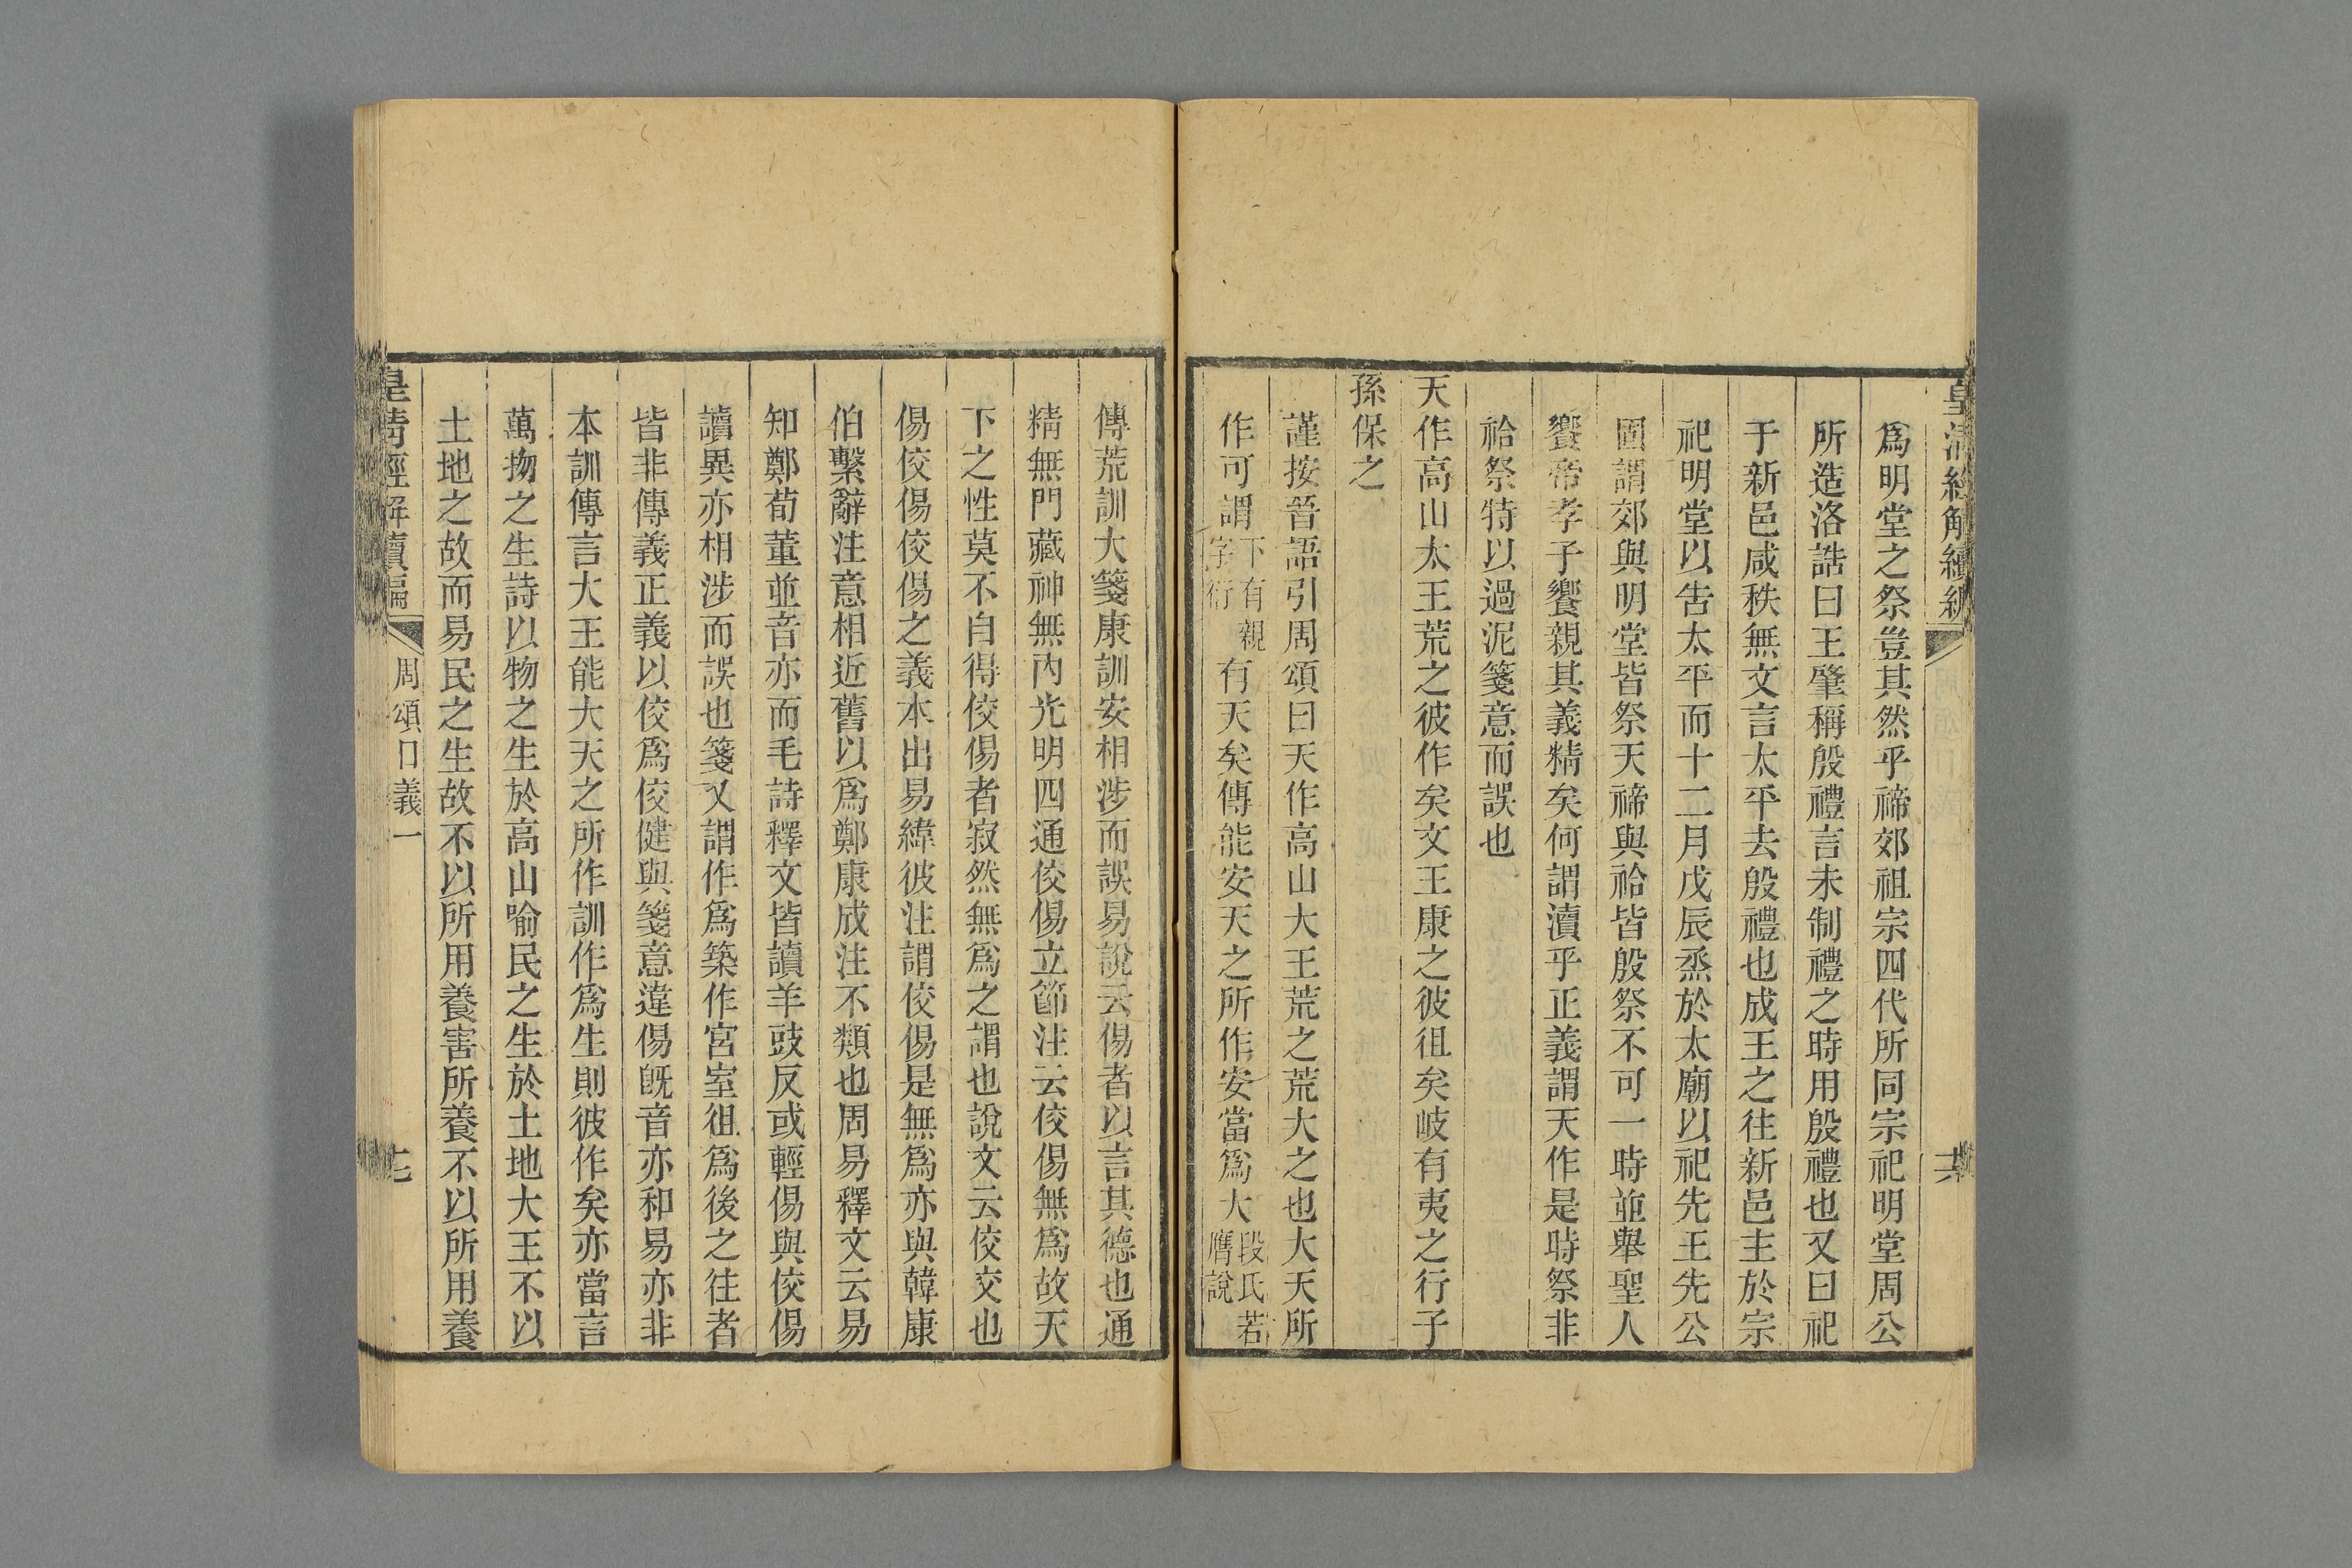 皇清經解續編
十六
爲明堂之祭豈其然乎禘郊祖宗四代所同宗祀明堂周公
所造洛誥曰王肇稱殷禮言未制禮之時用殷禮也又曰祀
于新邑咸秩無文言太平去殷禮也成王之往新邑主於宗
祀明堂以告太平而十二月戊辰烝於太廟以祀先王先公
圜謂郊與明堂皆祭天禘與祫皆殷祭不可一時並舉聖人
饗帝孝子饗親其義精矣何謂瀆乎正義謂天作是時祭非
祫祭特以過泥箋意而誤也
天作高山太王荒之彼作矣文王康之彼徂矣岐有夷之行子
孫保之
謹按晉語引周頌曰天作高山大王荒之荒大之也大天所
作可謂下有親字衍有天矣傳能安天之所作安當爲大段氏若膺說
傳荒訓大箋康訓安相涉而誤易說云傷者以言其德也通
精無門藏神無內光明四通佼傷立節注云佼傷無爲故天
下之性莫不自得佼傷者寂然無爲之謂也說文云佼交也
傷佼傷佼傷之義本出易緯彼注謂佼傷是無爲亦與韓康
伯繫辭注意相近舊以爲鄭康成注不類也周易釋文云易
知鄭荀董並音亦而毛詩釋文皆讀羊豉反或輕傷與佼傷
讀異亦相涉而誤也箋又謂作爲築作宮室徂爲後之往者
皆非傳義正義以佼爲佼健與箋意違傷旣音亦和易亦非
本訓傳言大王能大天之所作訓作爲生則彼作矣亦當言
萬物之生詩以物之生於高山喻民之生於土地大王不以
土地之故而易民之生故不以所用養害所養不以所用養
皇清經解續編
周頌口義一
十七